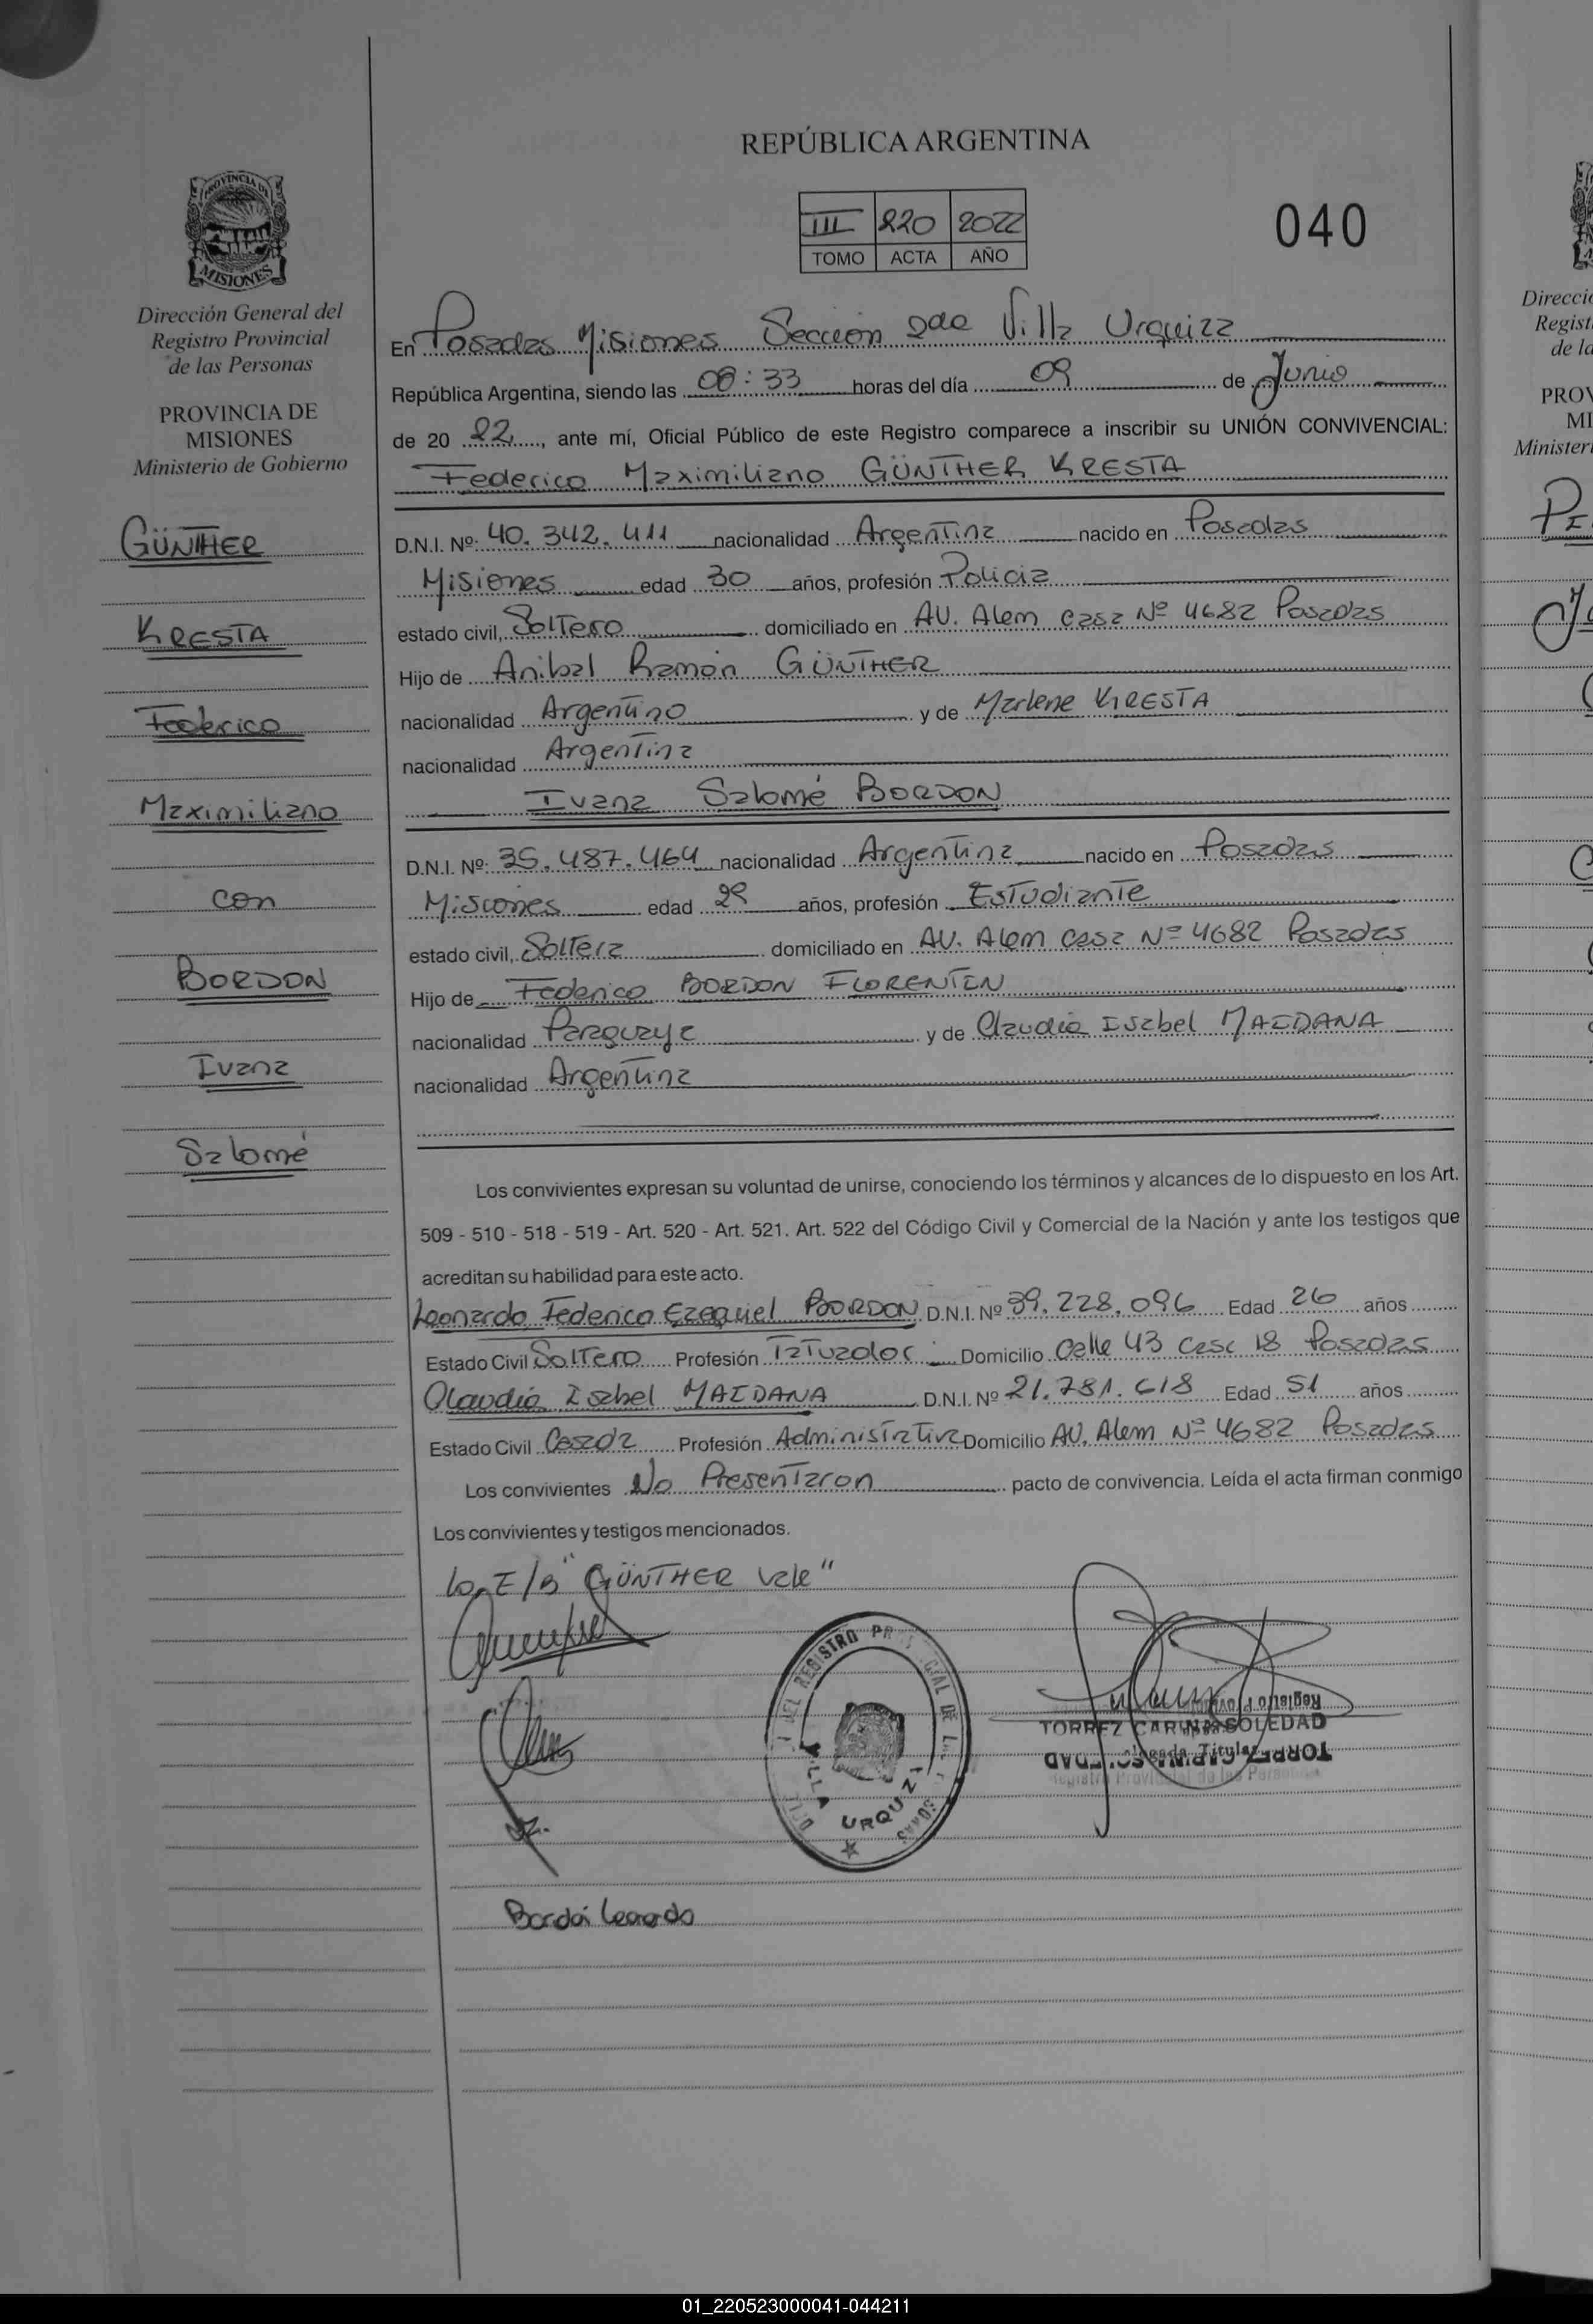 REPÚBLICA ARGENTINA
III 220 2022
TOMO ACTA AÑO
040
PROVINCIA DE
MISIONES
Dirección General del
Registro Provincial
de las Personas
PROVINCIA DE
MISIONES
Ministerio de Gobierno
GÜNTHER
KRESTA
Federico
Maximiliano
con
BORDON
Ivana
Salomé
En Posadas Misiones Sección 2da Villa Urquiza
República Argentina, siendo las 08:33 horas del día 09 de Junio
de 20 22, ante mí, Oficial Público de este Registro comparece a inscribir su UNIÓN CONVIVENCIAL:
Federico Maximiliano GÜNTHER KRESTA
D.N.I. Nº: 40.342.411 nacionalidad Argentina nacido en Posadas
Misiones edad 30 años, profesión Policia
estado civil, Soltero domiciliado en AV. Alem casa Nº 4682 Posadas
Hijo de Anibal Ramón GÜNTHER
nacionalidad Argentino y de Marlene KRESTA
nacionalidad Argentina
Ivana Salomé BORDON
D.N.I. Nº: 35.487.464 nacionalidad Argentina nacido en Posadas
Misiones edad 29 años, profesión Estudiante
estado civil, Soltera domiciliado en AV. Alem casa Nº 4682 Posadas
Hijo de Federico BORDON FLORENTIN
nacionalidad Paraguaya y de Claudia Isabel MAIDANA
nacionalidad Argentina
Los convivientes expresan su voluntad de unirse, conociendo los términos y alcances de lo dispuesto en los Art.
509 - 510 - 518 - 519 - Art. 520 - Art. 521. Art. 522 del Código Civil y Comercial de la Nación y ante los testigos que
acreditan su habilidad para este acto.
Leonardo Federico Ezequiel BORDON D.N.I. Nº 39.228.096 Edad 26 años
Estado Civil Soltero Profesión Tatuador Domicilio Calle 43 casa 18 Posadas
Claudia Isabel MAIDANA D.N.I. Nº 21.781.618 Edad 51 años
Estado Civil Casada Profesión Administrativa Domicilio AV. Alem Nº 4682 Posadas
Los convivientes No Presentaron pacto de convivencia. Leída el acta firman conmigo
Los convivientes y testigos mencionados.
Lo E/B "GÜNTHER Vale"
VILLA URQUIZA
TORREZ CARINA SOLEDAD
Titular
Bordón Leonardo
01_220523000041-044211